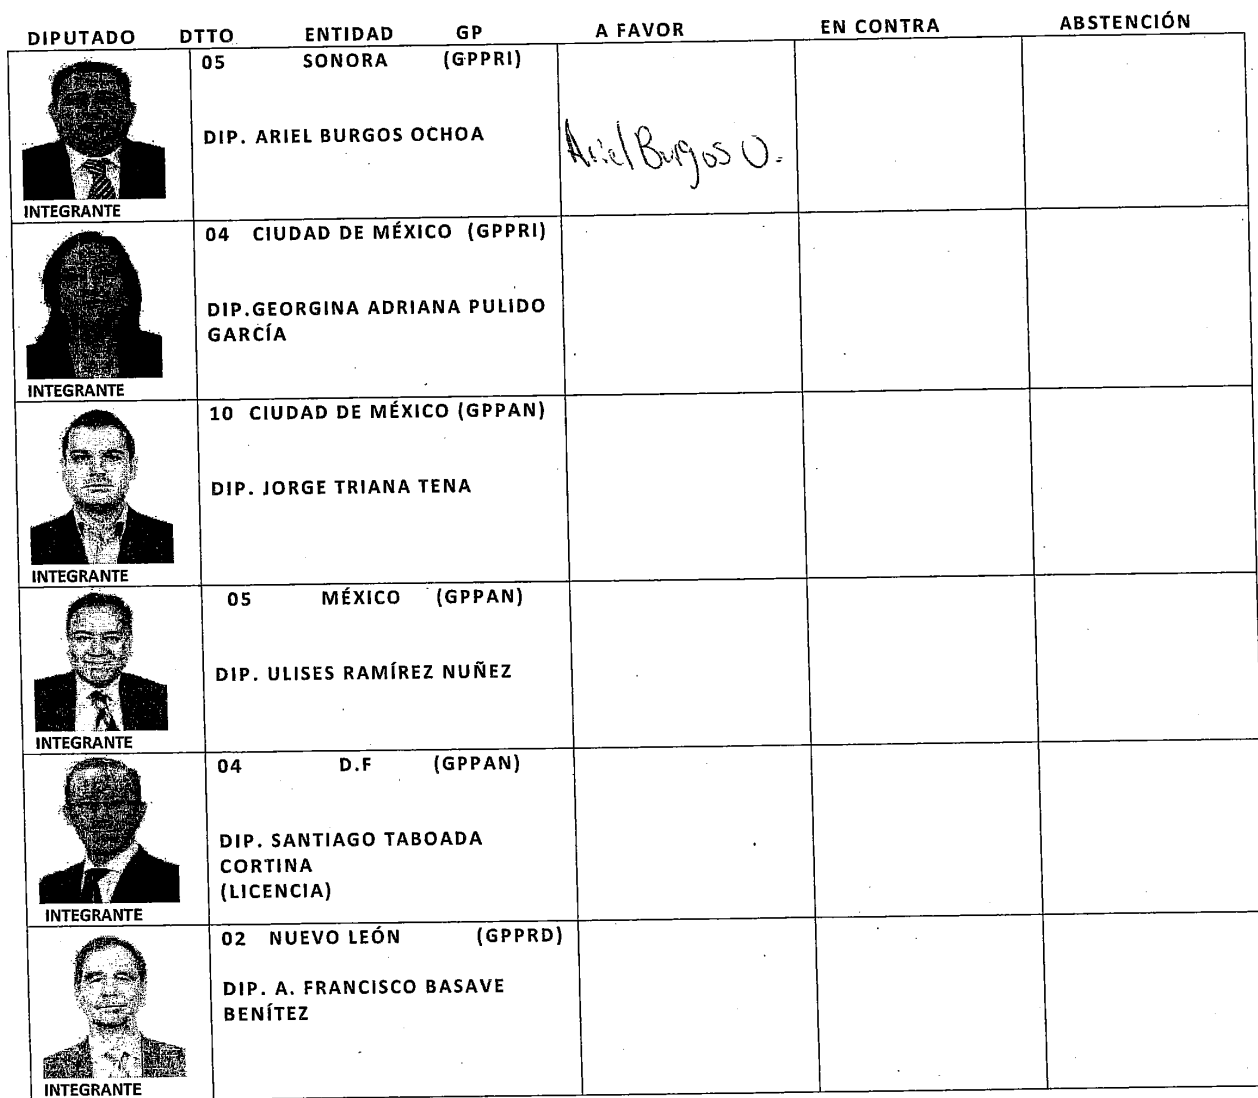 DIPUTADO DTTO ENTIDAD GP A FAVOR EN CONTRA ABSTENCIÓN
05 SONORA (GPPRI)
DIP. ARIEL BURGOS OCHOA
Ariel Burgos O.
INTEGRANTE
04 CIUDAD DE MÉXICO (GPPRI)
DIP.GEORGINA ADRIANA PULIDO
GARCÍA
INTEGRANTE
10 CIUDAD DE MÉXICO (GPPAN)
DIP. JORGE TRIANA TENA
INTEGRANTE
05 MÉXICO (GPPAN)
DIP. ULISES RAMÍREZ NUÑEZ
INTEGRANTE
04 D.F (GPPAN)
DIP. SANTIAGO TABOADA
CORTINA
(LICENCIA)
INTEGRANTE
02 NUEVO LEÓN (GPPRD)
DIP. A. FRANCISCO BASAVE
BENÍTEZ
INTEGRANTE